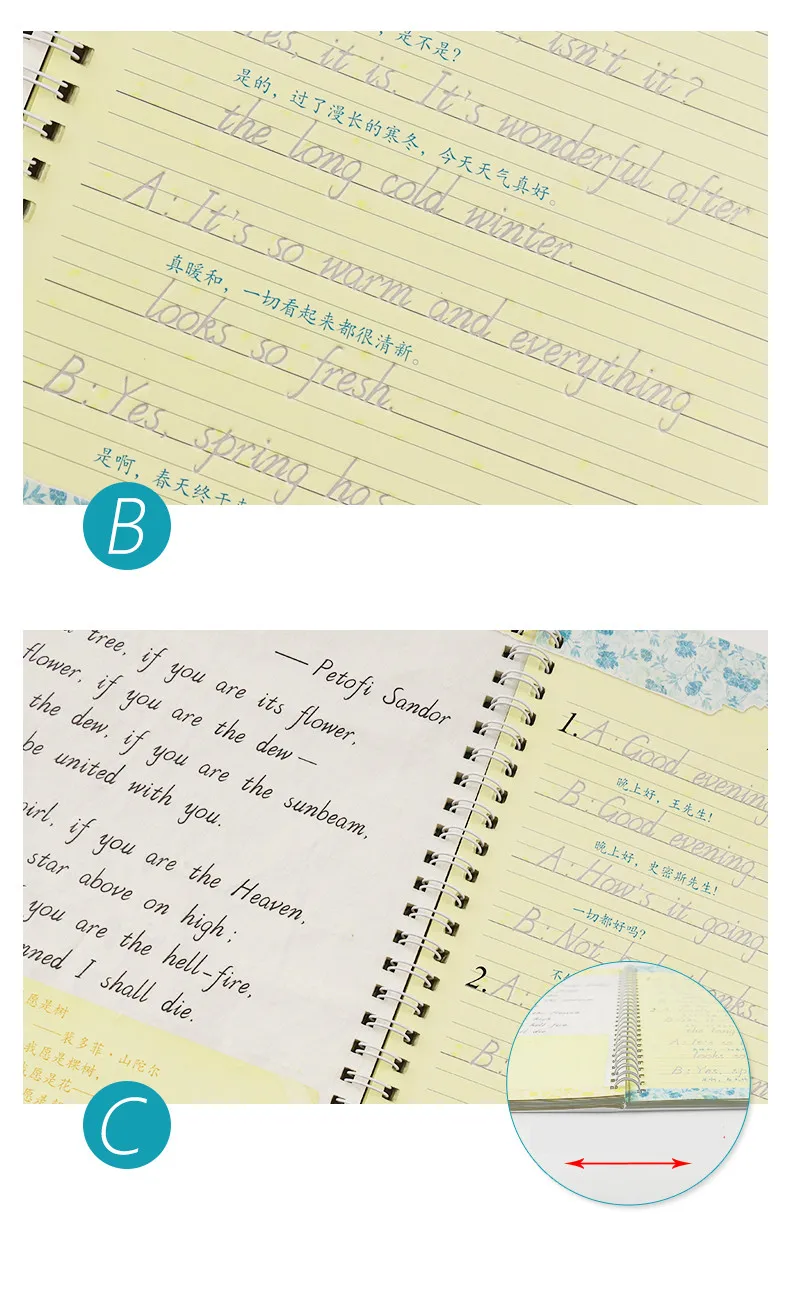 , 是不是?
isn't it?
, it is. It's wonderful after
是的, 过了漫长的寒冬, 今天天气真好。
the long cold winter.
A: It's so warm and everything
真暖和, 一切看起来都很清新。
looks so fresh.
B: Yes, spring has
是啊, 春天终于
B
— Petofi Sandor
tree, if you are its flower,
flower, if you are the dew—
the dew, if you are the sunbeam,
be united with you.
girl, if you are the Heaven,
star above on high;
you are the hell-fire,
I shall die.
愿是树
——裴多菲·山陀尔
我愿是棵树,
愿是花——
愿是
C
1. A: Good evening
晚上好, 王先生!
B: Good evening
晚上好, 史密斯先生!
A: How's it going
一切都好吗?
B: Not bad, thanks.
2. A:
B:
A: It's so
looks so
B: Yes, sp